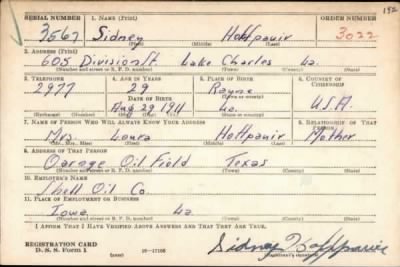 152
SERIAL NUMBER 1. NAME (Print) ORDER NUMBER
3567 Sidney Hoffpauir 3022
(First) (Middle) (Last)
2. ADDRESS (Print)
605 Division St. Lake Charles La.
(Number and street or R. F. D. number) (Town) (County) (State)
3. TELEPHONE 4. AGE IN YEARS 5. PLACE OF BIRTH 6. COUNTRY OF CITIZENSHIP
2977 29 Rayne
DATE OF BIRTH (Town or county)
Aug 29 1911 La. U.S.A.
(Exchange) (Number) (Mo.) (Day) (Yr.) (State or country)
7. NAME OF PERSON WHO WILL ALWAYS KNOW YOUR ADDRESS 8. RELATIONSHIP OF THAT PERSON
Mrs. Loura Hoffpauir Mother
(Mr., Mrs., Miss) (First) (Middle) (Last)
9. ADDRESS OF THAT PERSON
Oil Field Texas
(Number and street or R. F. D. number) (Town) (County) (State)
10. EMPLOYER'S NAME
Shell Oil Co.
11. PLACE OF EMPLOYMENT OR BUSINESS
Iowa La
(Number and street or R. F. D. number) (Town) (County) (State)
I AFFIRM THAT I HAVE VERIFIED ABOVE ANSWERS AND THAT THEY ARE TRUE.
REGISTRATION CARD
D. S. S. Form 1 (over) Sidney Hoffpauir
(Registrant's signature)